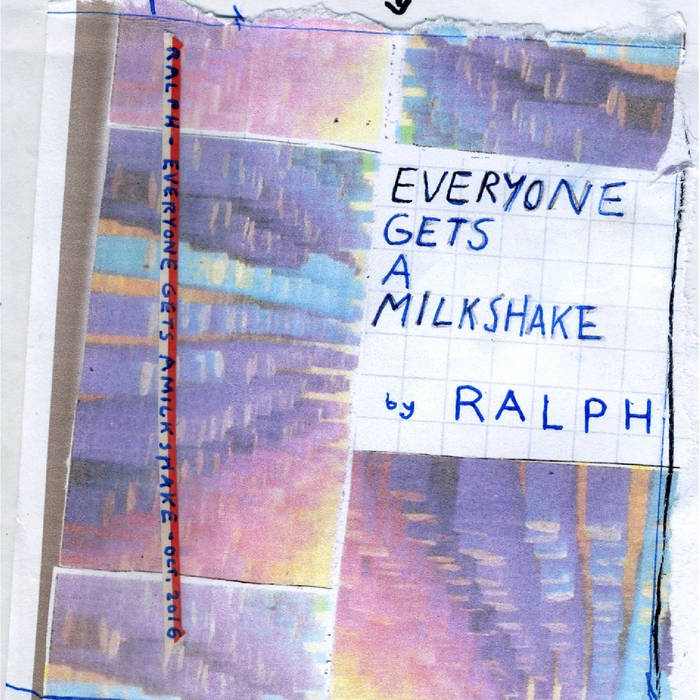 RALPH - EVERYONE GETS A MILKSHAKE - OCT. 2016
EVERYONE
GETS
A
MILKSHAKE
by RALPH